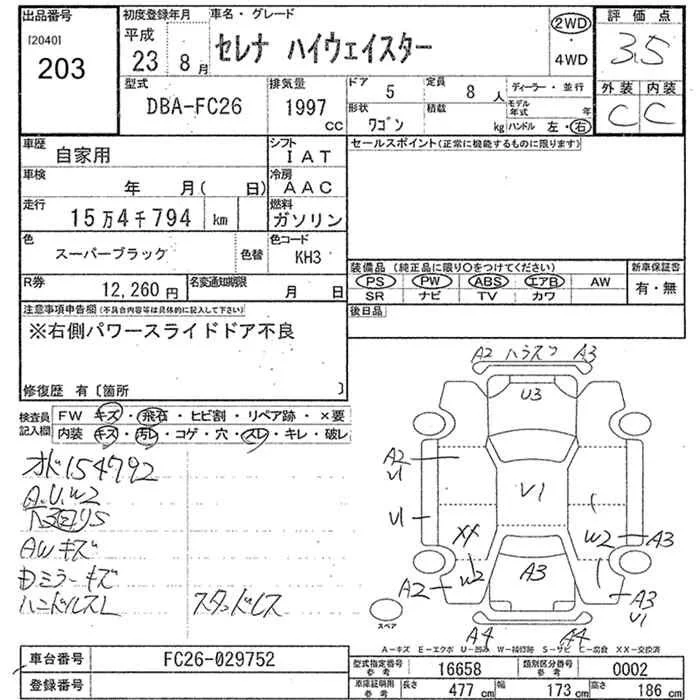 出品番号
[2040]
203
初度登録年月
平成
23 8月
車名・グレード
セレナ ハイウェイスター
2WD
・
4WD
評価点
3.5
外装 内装
C C
型式
DBA-FC26
排気量
1997
cc
ドア
5
定員
8 人
ディーラー・並行
形状
ワゴン
積載
kg
モデル年式 年
ハンドル 左・右
車歴
自家用
シフト
IAT
車検
年 月( 日)
冷房
AAC
走行
15万4千794 km
燃料
ガソリン
色
スーパーブラック
色替
色コード
KH3
R券
12,260 円
名変通知期限
月 日
セールスポイント(正常に機能するものに限ります)
装備品(純正品に限り○をつけてください)
PS PW ABS エアB AW
SR ナビ TV カワ
新車保証書
有・無
後日品
注意事項申告欄(不具合内容等は具体的に記入して下さい)
※右側パワースライドドア不良
修復歴 有〔箇所 〕
検査員
記入欄
FW キズ・飛石・ヒビ割・リペア跡・×要
内装 キズ・汚レ・コゲ・穴・スレ・キレ・破レ
オド154792
A.U.W2
AWキズ
Dミラーキズ
ハンドルスレ
スタッドレス
A2 A3
U3
A2
U1
U1
V1
XX
W2
W2
A3
A2
A3
A3
V1
A4 A4
スペア
A－キズ E－エクボ U－凹み W－補修跡 S－サビ C－腐食 XX－交換済
車台番号
FC26-029752
登録番号
型式指定番号
参考
16658
類別区分番号
参考
0002
車庫証明用
参考
長さ 477 cm 幅 173 cm 高さ 186 cm